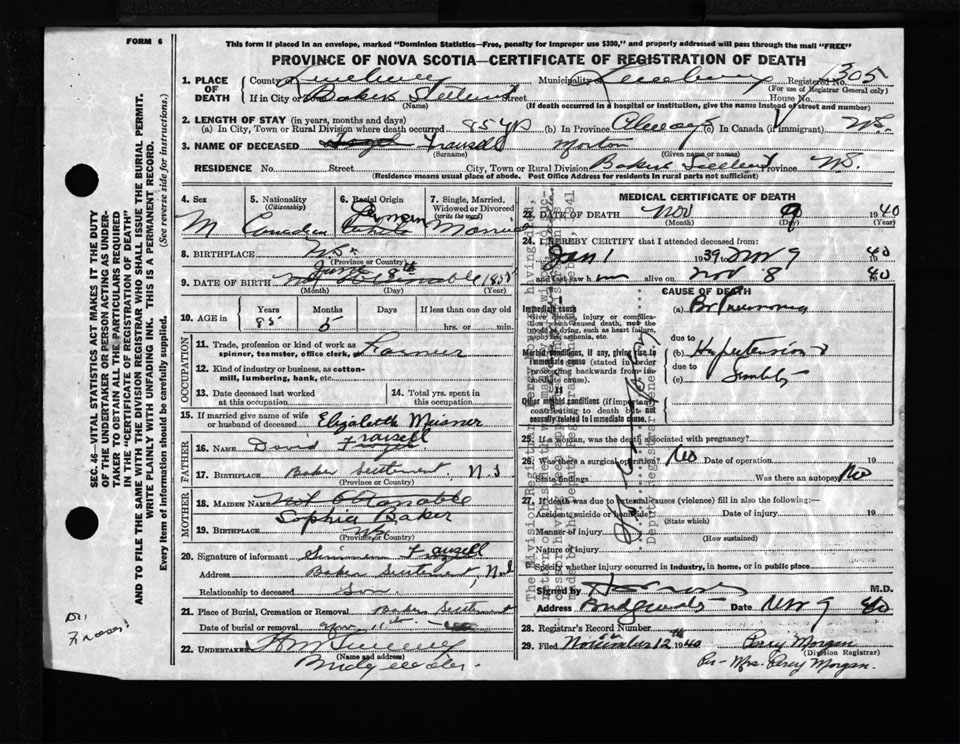 FORM 6
This form if placed in an envelope, marked "Dominion Statistics—Free, penalty for improper use $300," and properly addressed will pass through the mail "FREE"
PROVINCE OF NOVA SCOTIA—CERTIFICATE OF REGISTRATION OF DEATH
1. PLACE OF DEATH County of Lunenburg Municipality Lunenburg Registered No. 1305
(For use of Registrar General only)
If in City or Bakers Settlement Street House No.
(Name) (If death occurred in a hospital or institution, give the name instead of street and number)
2. LENGTH OF STAY (in years, months and days)
(a) In City, Town or Rural Division where death occurred 85 yrs (b) In Province Always (c) In Canada (if immigrant) N.S.
3. NAME OF DECEASED Frausell Morton
(Surname) (Given name or names)
RESIDENCE No. Street City, Town or Rural Division Bakers Settlement Province N.S.
(Residence means usual place of abode. Post Office Address for residents in rural parts not sufficient)
4. Sex M
5. Nationality (Citizenship) Canadian
6. Racial Origin German
7. Single, Married, Widowed or Divorced (write the word) Married
8. BIRTHPLACE N.S.
(Province or Country)
9. DATE OF BIRTH June 8th Not Obtainable 1855
(Month) (Day) (Year)
10. AGE in Years Months Days If less than one day
85 5 hrs. or min.
OCCUPATION
11. Trade, profession or kind of work as spinner, teamster, office clerk, Farmer
12. Kind of industry or business, as cotton-mill, lumbering, bank, etc.
13. Date deceased last worked at this occupation
14. Total yrs. spent in this occupation
15. If married give name of wife or husband of deceased Elizabeth Meisner
FATHER
16. Name David Frausell
17. Birthplace Baker Settlement, N.S
(Province or Country)
MOTHER
18. Maiden Name Not Obtainable
Sophia Baker
19. Birthplace N.S.
(Province or Country)
20. Signature of informant Frausell
Address Baker Settlement, N.S
Relationship to deceased Son
21. Place of Burial, Cremation or Removal Baker Settlement
Date of burial or removal Nov 11th
22. UNDERTAKER
(Name and address)
Bridgewater
MEDICAL CERTIFICATE OF DEATH
23. DATE OF DEATH Nov 9 1940
(Month) (Day) (Year)
24. I HEREBY CERTIFY that I attended deceased from:
Jan 1 1939 to Nov 9 1940
and last saw him alive on Nov 8 1940
CAUSE OF DEATH
Immediate cause
Give disease, injury or complication which caused death, not the mode of dying, such as heart failure, asphyxia, asthenia, etc.
(a) Br Pneumonia
due to
Morbid conditions, if any, giving rise to immediate cause (stated in order proceeding backwards from immediate cause).
(b) Hypertension &
due to
(c) Senility
Other morbid conditions (if important) contributing to death but not causally related to immediate cause.
25. If a woman, was the death associated with pregnancy?
26. Was there a surgical operation? No Date of operation 19
State findings Was there an autopsy No
27. If death was due to external causes (violence) fill in also the following:—
Accident, suicide or homicide Date of injury 19
(State which)
Manner of injury
(How sustained)
Nature of injury
Specify whether injury occurred in industry, in home, or in public place
Signed by M.D.
Address Bridgewater Date Nov 9 1940
28. Registrar's Record Number
29. Filed November 12th 1940 Percy Morgan
(Division Registrar)
Per- Mrs. Percy Morgan.
SEC. 46—VITAL STATISTICS ACT MAKES IT THE DUTY
OF THE UNDERTAKER OR PERSON ACTING AS UNDER-
TAKER TO OBTAIN ALL THE PARTICULARS REQUIRED
IN THE "CERTIFICATE OF REGISTRATION OF DEATH"
AND TO FILE THE SAME WITH THE DIVISION REGISTRAR WHO SHALL ISSUE THE BURIAL PERMIT.
WRITE PLAINLY WITH UNFADING INK. THIS IS A PERMANENT RECORD.
Every item of information should be carefully supplied. (See reverse side for instructions.)